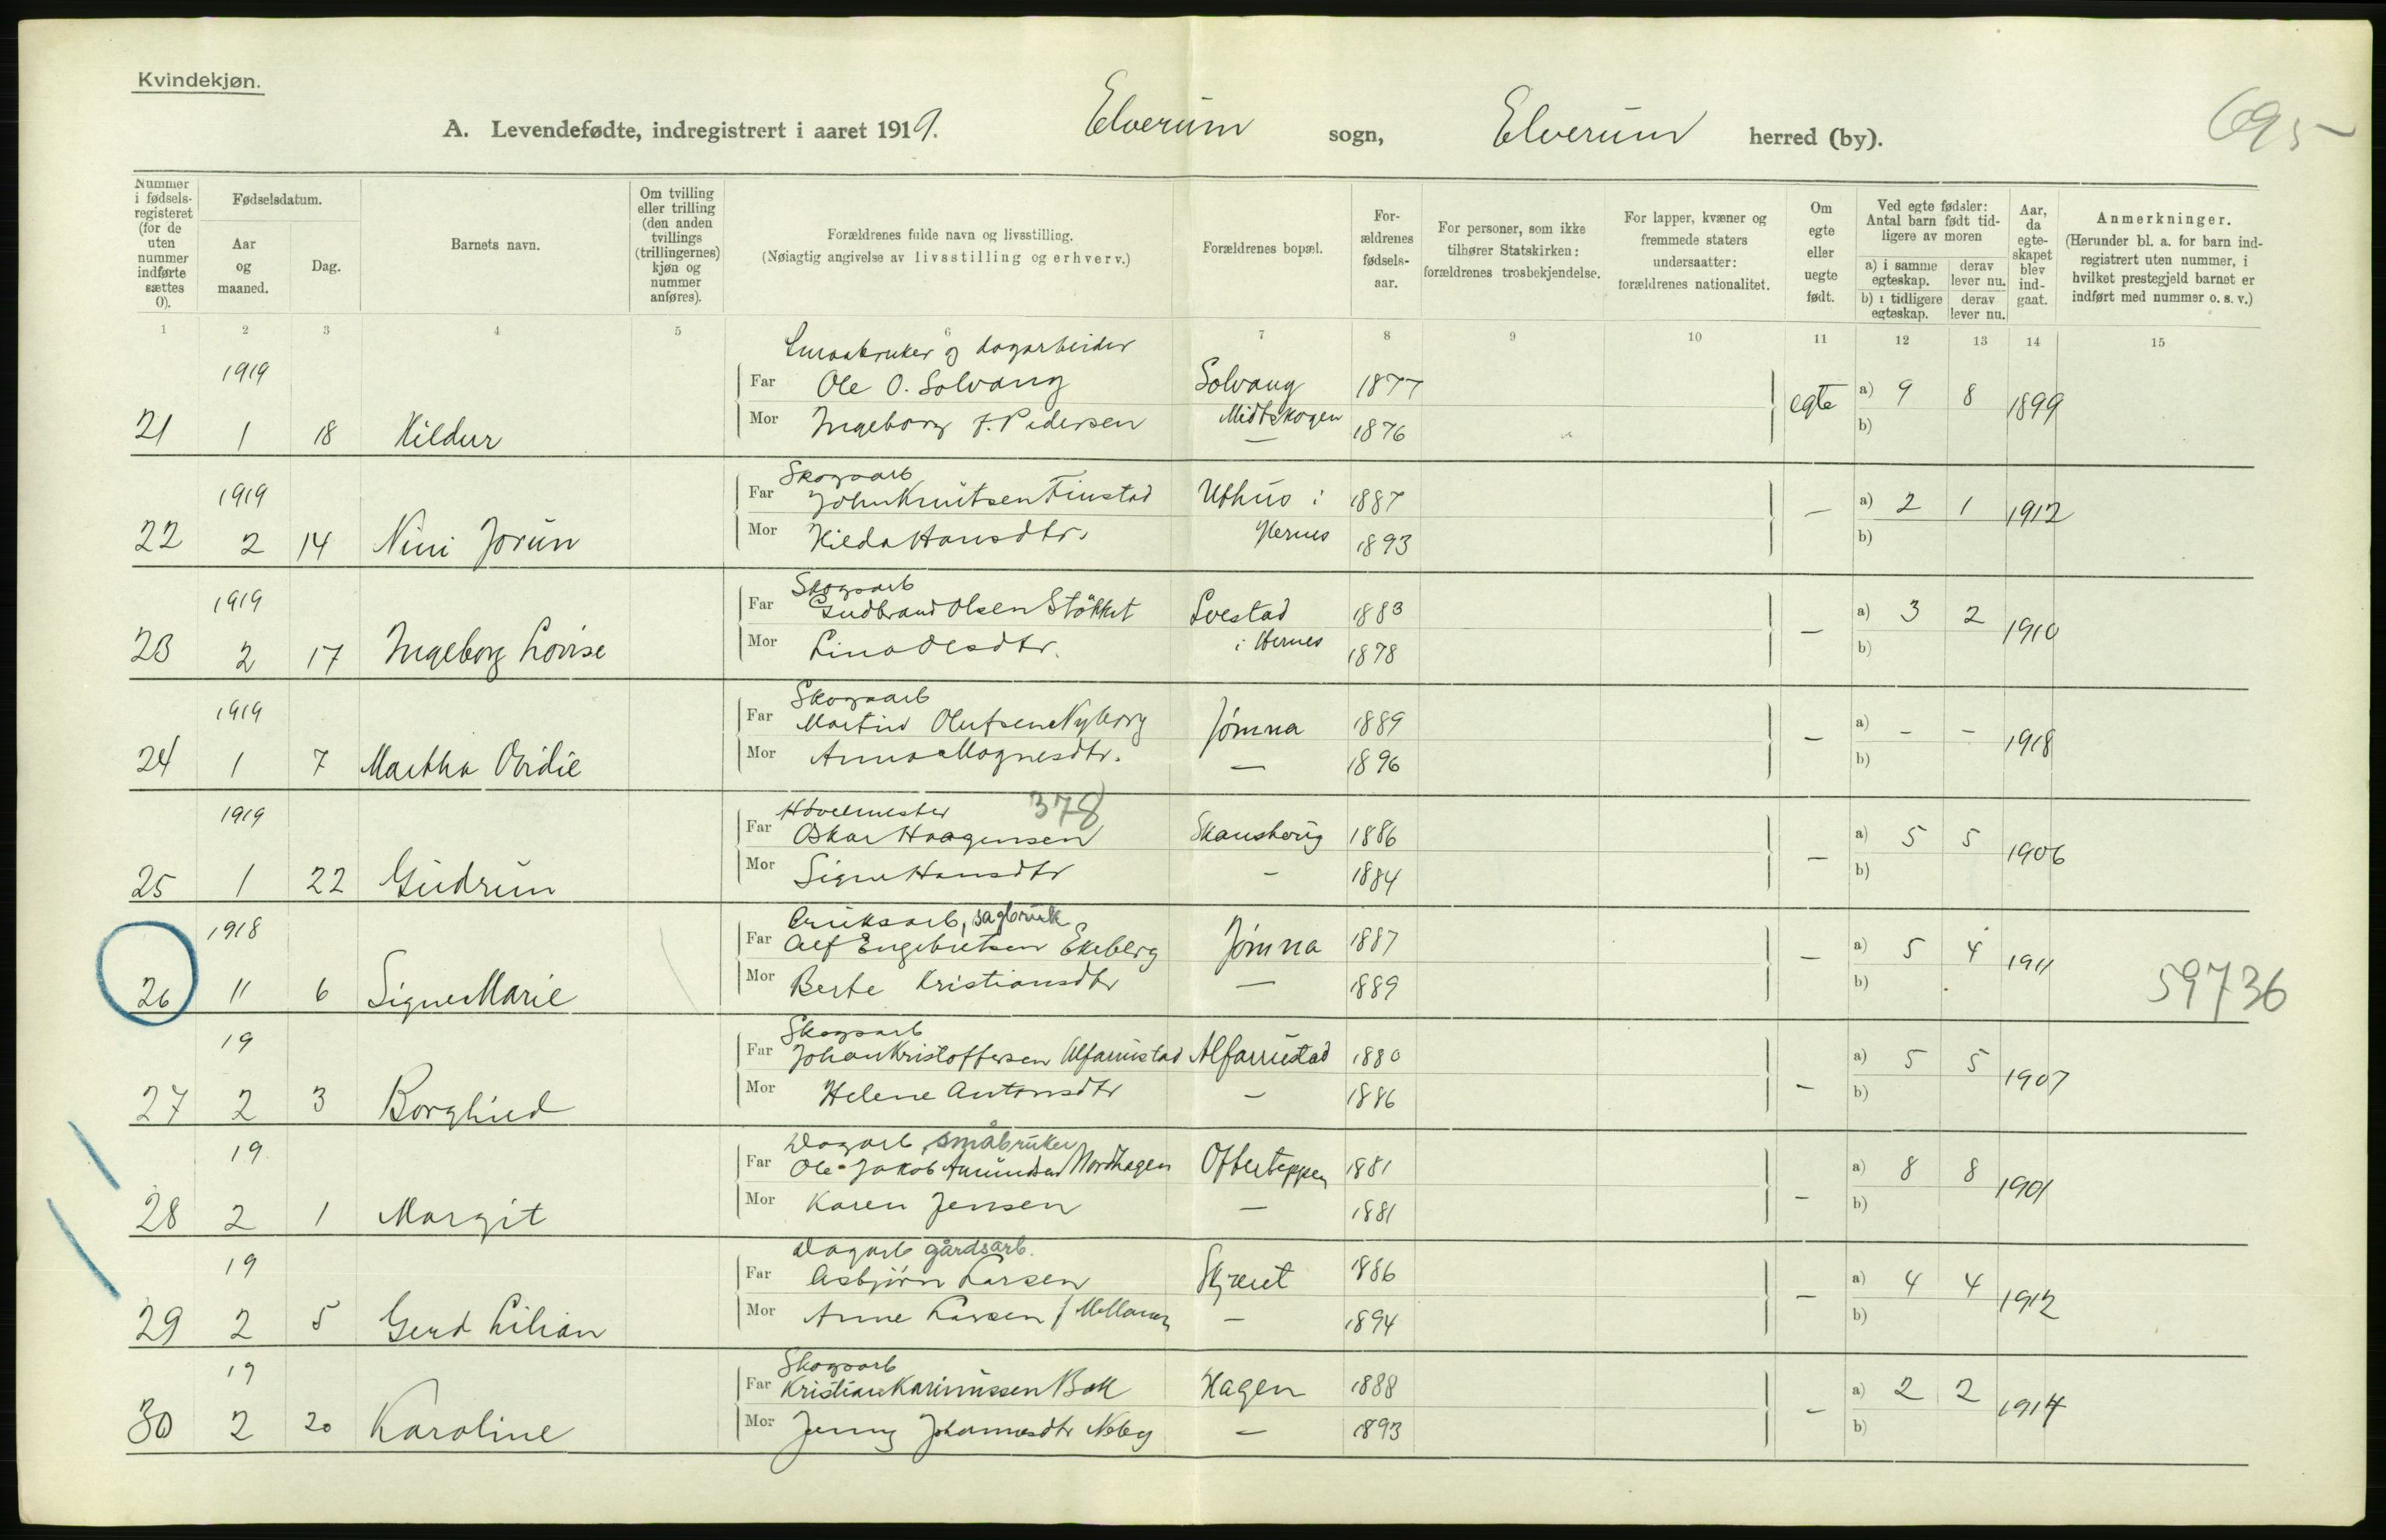 Kvindekjøn.
A. Levendefødte, indregistrert i aaret 1919. Elverum sogn, Elverum herred (by).
695
Nummer i fødselsregisteret (for de uten nummer indførte sættes 0).
Fødselsdatum.
Aar og maaned.
Dag.
Barnets navn.
Om tvilling eller trilling (den anden tvillings (trillingernes) kjøn og nummer anføres).
Forældrenes fulde navn og livsstilling.
(Nøiagtig angivelse av livsstilling og erhverv.)
Forældrenes bopæl.
Forældrenes fødselsaar.
For personer, som ikke tilhører Statskirken: forældrenes trosbekjendelse.
For lapper, kvæner og fremmede staters undersaatter: forældrenes nationalitet.
Om egte eller uegte født.
Ved egte fødsler: Antal barn født tidligere av moren
a) i samme egteskap. derav lever nu.
b) i tidligere egteskap. derav lever nu.
Aar, da egteskapet blev indgaat.
Anmerkninger.
(Herunder bl. a. for barn indregistrert uten nummer, i hvilket prestegjeld barnet er indført med nummer o. s. v.)
1 2 3 4 5 6 7 8 9 10 11 12 13 14 15
Smaabruker og dagarbeider
1919 Far Ole O. Solvang Solvang 1877 egte a) 9 8 1899
21 1 18 Hildur Mor Ingeborg J. Pedersen Midtskogen — 1876 b)
Skogsarb
1919 Far John Knutsen Finstad Uthus i 1887 — a) 2 1 1912
22 2 14 Nini Jorun Mor Hilda Hansdtr. Hernes 1893 b)
Skogsarb
1919 Far Gudbrand Olsen Støkket Svestad 1883 — a) 3 2 1910
23 2 17 Ingeborg Lovise Mor Lina Olsdtr. i Hernes 1878 b)
Skogsarb
1919 Far Martin Olufsen Nyborg Jømna 1889 — a) - - 1918
24 1 7 Martha Ovidie Mor Anna Magnesdtr. — 1896 b)
Høvelmester 378
1919 Far Oskar Haagensen Skansherig 1886 — a) 5 5 1906
25 1 22 Gudrun Mor Signe Hansdtr — 1884 b)
Bruksarb, sagbruk
1918 Far Alf Engebretsen Ekeberg Jømna 1887 — a) 5 4 1911
26 11 6 Signe Marie Mor Berte Kristiansdtr — 1889 b) 59736
Skogsarb
19 Far Johan Kristoffersen Alfarrustad Alfarrustad 1880 — a) 5 5 1907
27 2 3 Borghild Mor Helene Antonsdtr — 1886 b)
Dagarb, småbruker
19 Far Ole Jakob Amundsen Nordhagen Olterteppen 1881 — a) 8 8 1901
28 2 1 Margit Mor Karen Jensen — 1881 b)
Dagarb gårdsarb.
19 Far Asbjørn Larsen Skjæret 1886 — a) 4 4 1912
29 2 5 Gerd Lilian Mor Anne Larsen f. — 1894 b)
Skogsarb
19 Far Kristian Karinussen Bak Hagen 1888 — a) 2 2 1914
30 2 20 Karoline Mor Jenny Johannesdtr Neby — 1893 b)